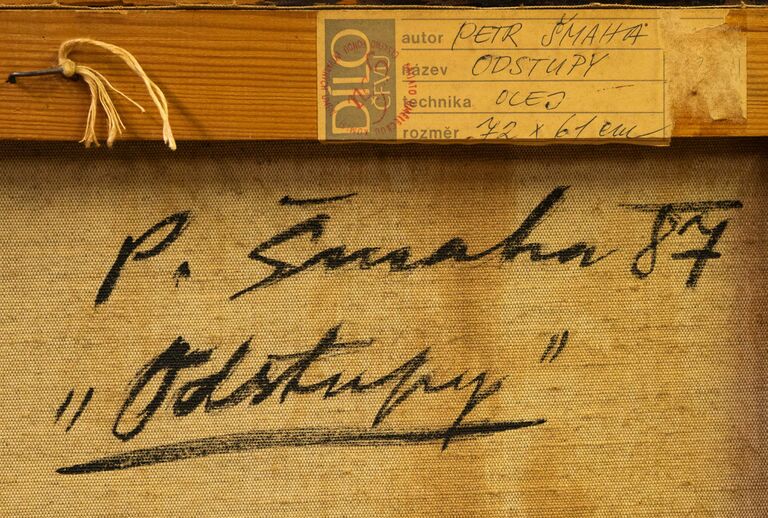 DILO
ČFVU
autor PETR ŠMAHA
název ODSTUPY
technika OLEJ
rozměr 72 x 61 cm
P. Šmaha 87
„Odstupy”